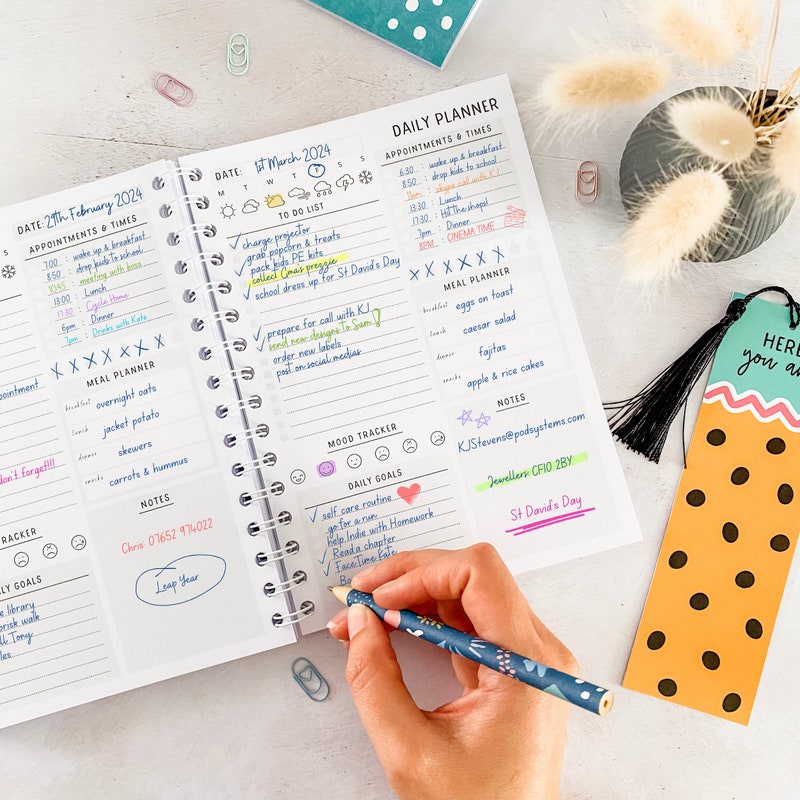 DATE: 29th February 2024
APPOINTMENTS & TIMES
7:00 : wake up & breakfast
8:50 : drop kids to school
10:45 : meeting with boss
13:00 : Lunch
17:30 : Cycle Home
6pm : Dinner
7pm : Drinks with Kate
S
MEAL PLANNER
breakfast overnight oats
lunch jacket potato
dinner skewers
snacks carrots & hummus
NOTES
Chris: 07652 974022
Leap Year
don't forget!!!
library
brisk walk
Tony
DATE: 1st March 2024
M T W T F S S
TO DO LIST
charge projector
grab popcorn & treats
pack kids PE kits
collect Gmas prezzie
school dress up for St David's Day
prepare for call with KJ
send new designs to Sam!
order new labels
post on social medias
MOOD TRACKER
DAILY GOALS
self care routine
go for a run
help Indie with Homework
Read a chapter
FaceTime Kate
DAILY PLANNER
APPOINTMENTS & TIMES
6:30 : wake up & breakfast
8:50 : drop kids to school
11am : skype call with KJ
13:30 : Lunch
17:30 : Hit the shops!
7pm : Dinner
8PM : CINEMA TIME
MEAL PLANNER
breakfast eggs on toast
lunch caesar salad
dinner fajitas
snacks apple & rice cakes
NOTES
KJStevens@podsystems.com
Jewellers CF10 2BY
St David's Day
HERE
you